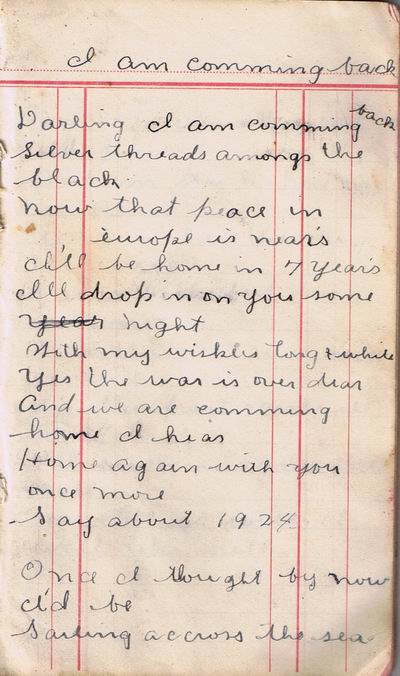 I am comming back
Darling I am comming back
Silver threads amongs the
black
Now that peace in
europe is nears
I'll be home in 7 years
Ill drop in on you some
year night
With my wiskies long & white
Yes the war is over dear
And we are comming
home I hear
Home again with you
once more
Say about 1924
Once I thought by now
I'd be
Sailing accross the sea